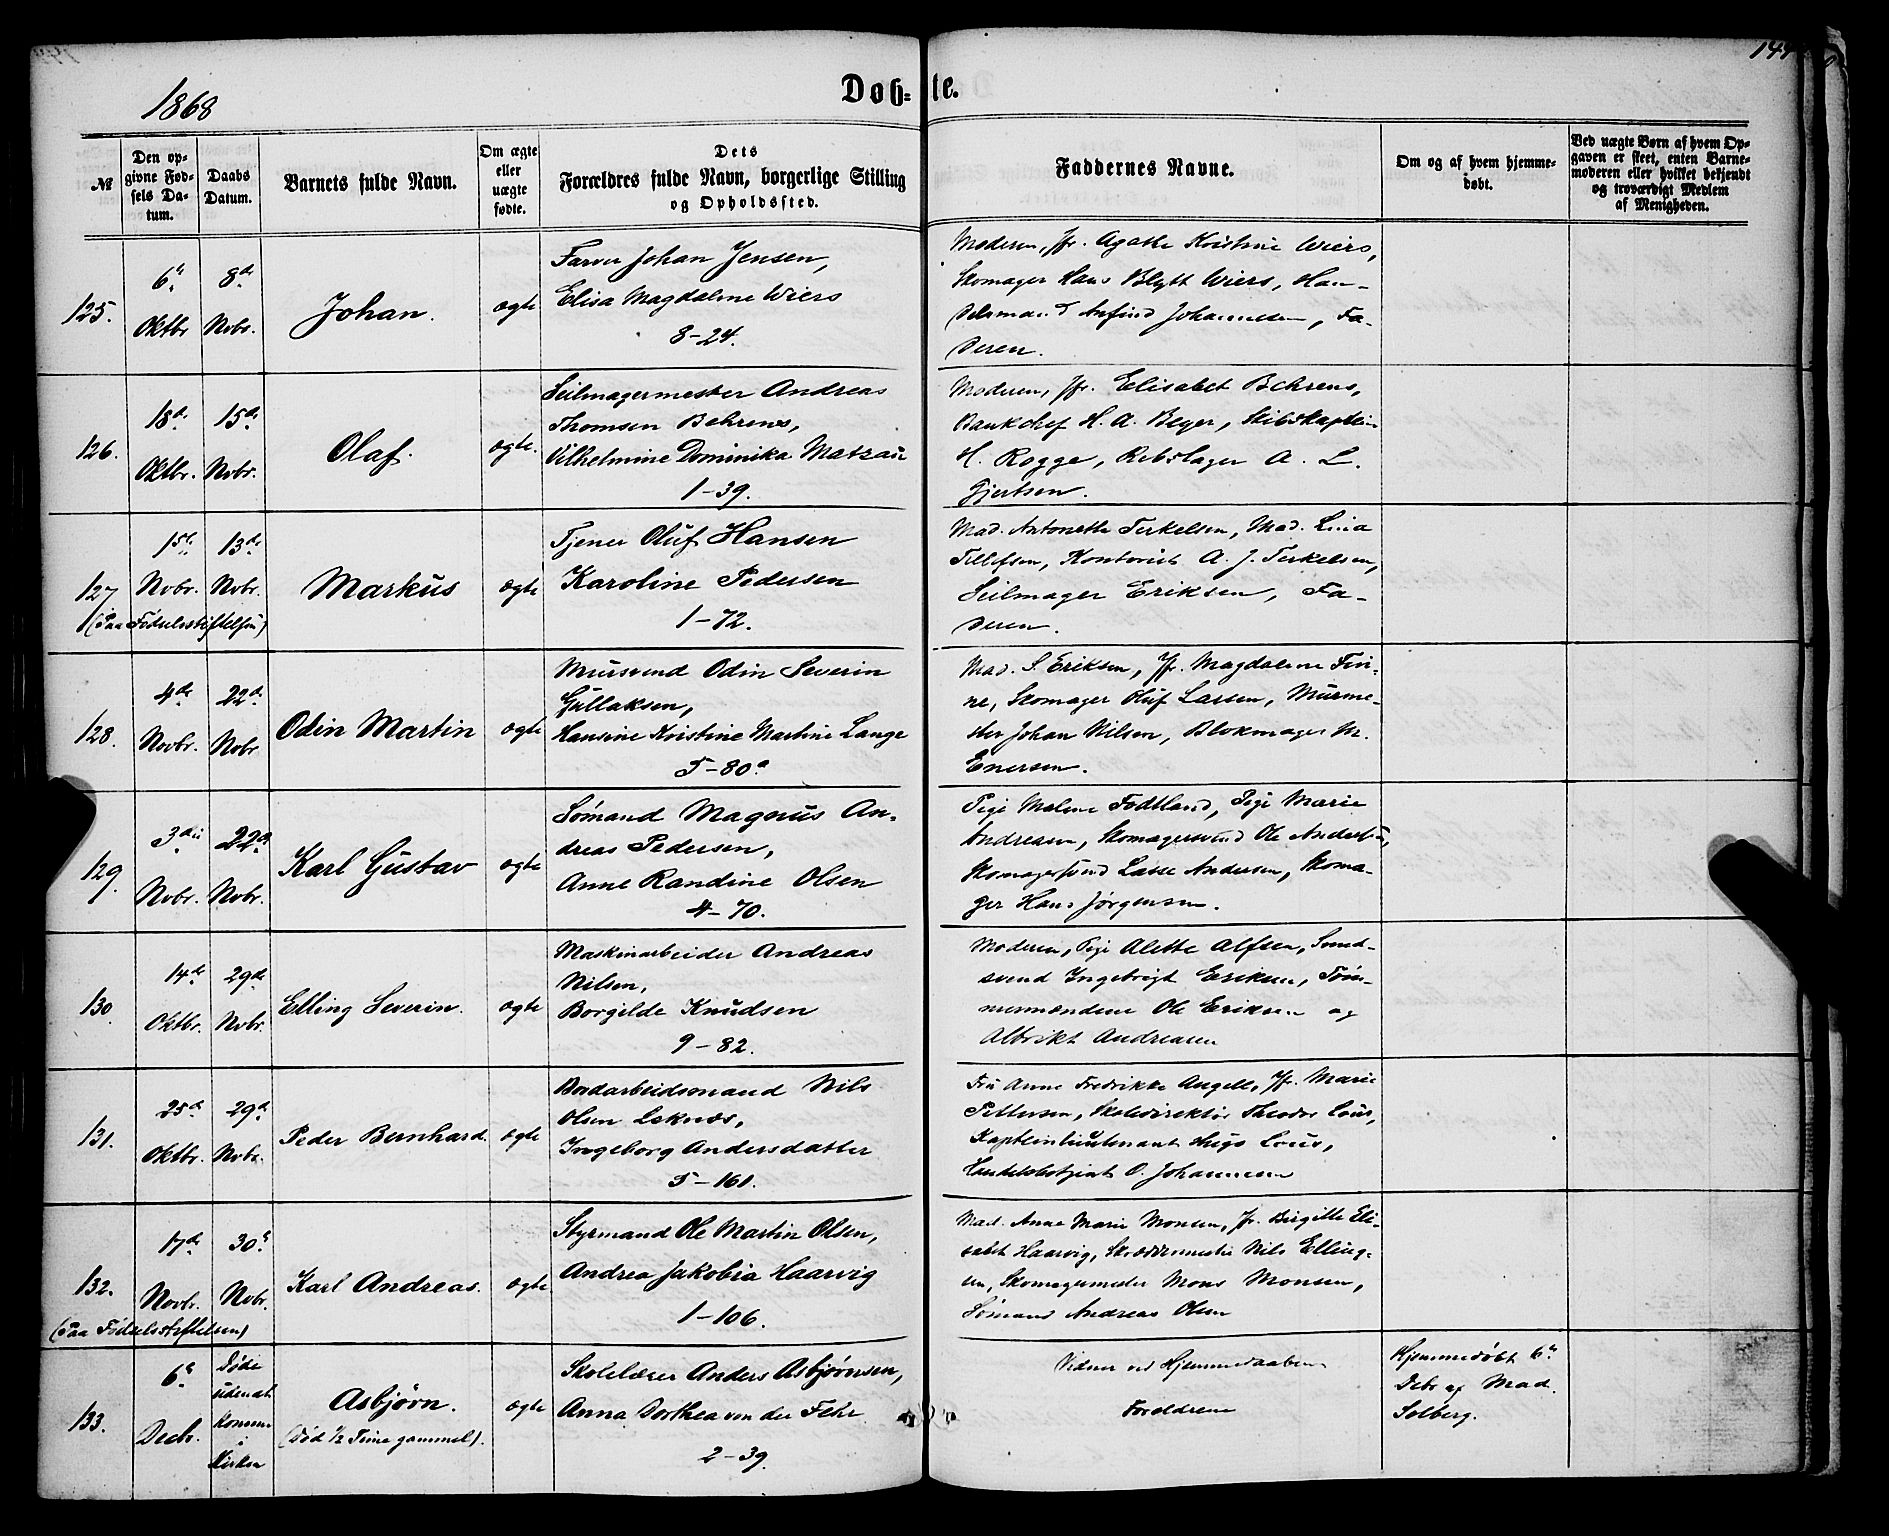 1868
Døb=te.
149
№
Den opgivne Fødsels Datum.
Daabs Datum.
Barnets fulde Navn.
Om ægte eller uægte fødte.
Dets Forældres fulde Navn, borgerlige Stilling og Opholdssted.
Faddernes Navne.
Om og af hvem hjemmedøbt.
Ved uægte Børn af hvem Opgaven er skeet, enten Barnemoderen eller hvilket bekjendt og troværdigt Medlem af Menigheden.
125.
6te Oktbr
8de Nvbr.
Johan.
ægte
Farver Johan Jensen,
Elisa Magdalene Wiers
8-24.
Moderen, Jfr. Agathe Kristine Wiers,
Skomager Hans Blytt Wiers, Han-
delsmand Anfind Johannesen, Fa-
deren.
126.
18de Oktbr.
15de Nvbr.
Olaf.
ægte.
Seilmagermester Andreas
Thomsen Behrens,
Vilhelmine Dominika Matzau
1-39.
Moderen, Jfr. Elisabet Behrens,
Bankchef H. A. Beyer, Skibskaptein
H. Rogge, Rebslager A. L.
Gjertsen.
127
1ste Nvbr.
13de Nvbr.
(Paa Fødselsstiftelsen)
Markus
ægte
Tjener Oluf Hansen
Karoline Pedersen
1-72.
Mad. Antonette Terkelsen, Mad. Lina
Tellefsen, Kontorist A. J. Terkelsen,
Seilmager Eriksen, Fa-
deren.
128.
4de Novbr.
22de Nvbr.
Odin Martin
ægte
Mursvend Odin Severin
Gullaksen,
Hansine Kristine Martine Lange
5-80a
Mad. S. Eriksen, Jfr. Magdalene Fin-
ne, Skomager Oluf Larsen, Murme-
ster Johan Nilsen, Blokmager M.
Enersen.
129.
3die Nvbr.
22de Nvbr.
Karl Gustav
ægte
Sømand Magnus An-
dreas Pedersen,
Anne Randine Olsen
4-70.
Pige Malene Fodtland, Pige Marie
Andreasen, Skomagersvend Ole Andersen,
Skomagersvend Lasse Andersen, Skoma-
ger Hans Jørgensen.
130.
14de Oktbr.
29de Nvbr.
Elling Severin.
ægte
Maskinarbeider Andreas
Nilsen,
Borgilde Knudsen
9-82.
Moderen, Pige Alette Alfsen, Smed-
svend Ingebrigt Eriksen, Tøm-
mermændene Ole Eriksen og
Albrikt Andreasen
131.
25de Oktbr.
29de Nvbr.
Peder Bernhard.
ægte
Jordarbeidsmand Nils
Olsen Leknes,
Ingeborg Andersdatter
5-161.
Fru Anne Fredrikke Angell, Jfr. Marie
Pettersen, Skoledirektør Theodor Lous,
Kapteinlieutenant Hugo Lous,
Handelsbetjent O. Johannesen
132.
17de Novbr.
30te Nvbr.
(Paa Fødselsstiftelsen)
Karl Andreas.
ægte
Styrmand Ole Martin Olsen,
Andrea Jakobia Haarvig
1-106.
Mad. Anne Marie Monsen, Jfr. Birgitte Eli-
sabet Haarvig, Skræddermester Nils Elling-
sen, Skomagermester Mons Monsen,
Sømand Andreas Olsen
133.
6te Decbr.
Døde
uden at
komme
i
Kirken
Asbjørn.
(død ½ Time gammel).
ægte
Skolelærer Anders Asbjørnsen,
Anna Dorthea von der Fehr
2-39.
Vidner ved Hjemmedaaben
Foreldrene
Hjemmedøbt 6te
Debr af Mad.
Solberg.